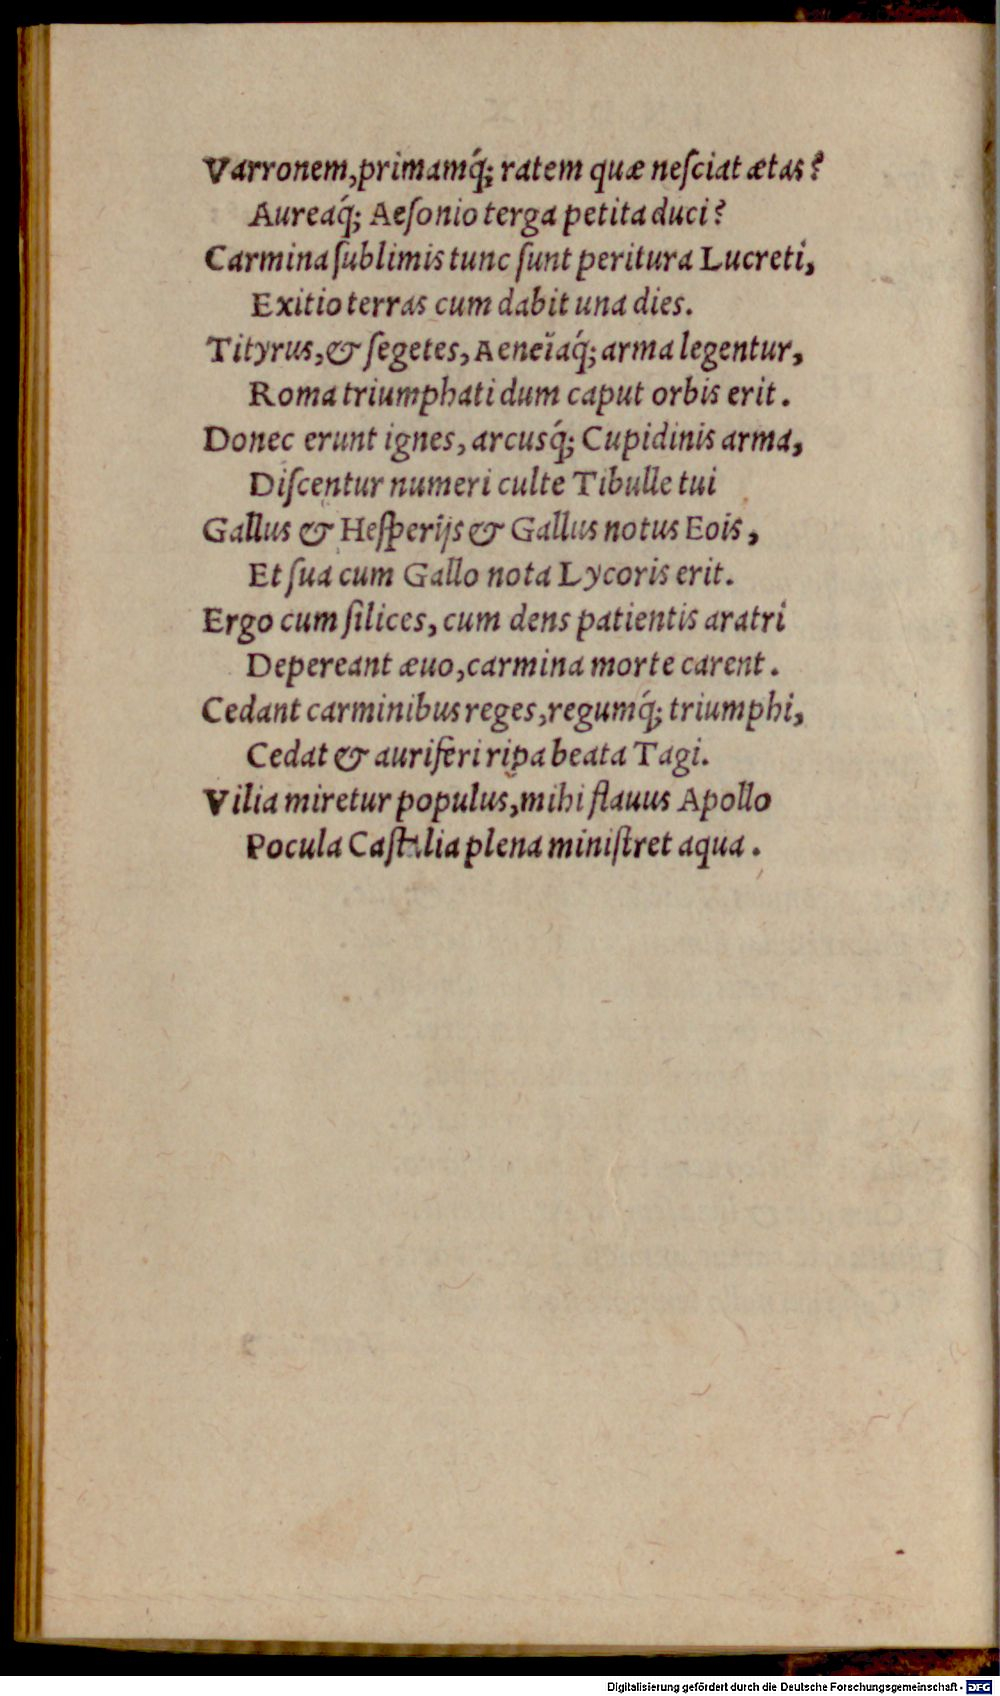 Varronem,primamq́; ratem quæ neſciat ætas?
Aureaq́; Aeſonio terga petita duci?
Carmina ſublimis tunc ſunt peritura Lucreti,
Exitio terras cum dabit una dies.
Tityrus,& ſegetes, Aeneïaq́; arma legentur,
Roma triumphati dum caput orbis erit.
Donec erunt ignes, arcusq́; Cupidinis arma,
Diſcentur numeri culte Tibulle tui
Gallus & Heſperijs & Gallus notus Eois,
Et ſua cum Gallo nota Lycoris erit.
Ergo cum ſilices, cum dens patientis aratri
Depereant æuo,carmina morte carent.
Cedant carminibus reges,regumq́; triumphi,
Cedat & auriferi ripa beata Tagi.
Vilia miretur populus,mihi flauus Apollo
Pocula Caſtalia plena miniſtret aqua.
Digitalisierung gefördert durch die Deutsche Forschungsgemeinschaft - DFG